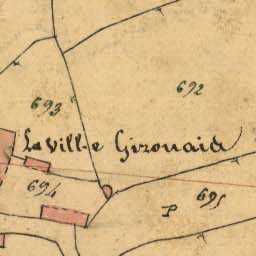 692
693
La Ville Girouais
694
695
P